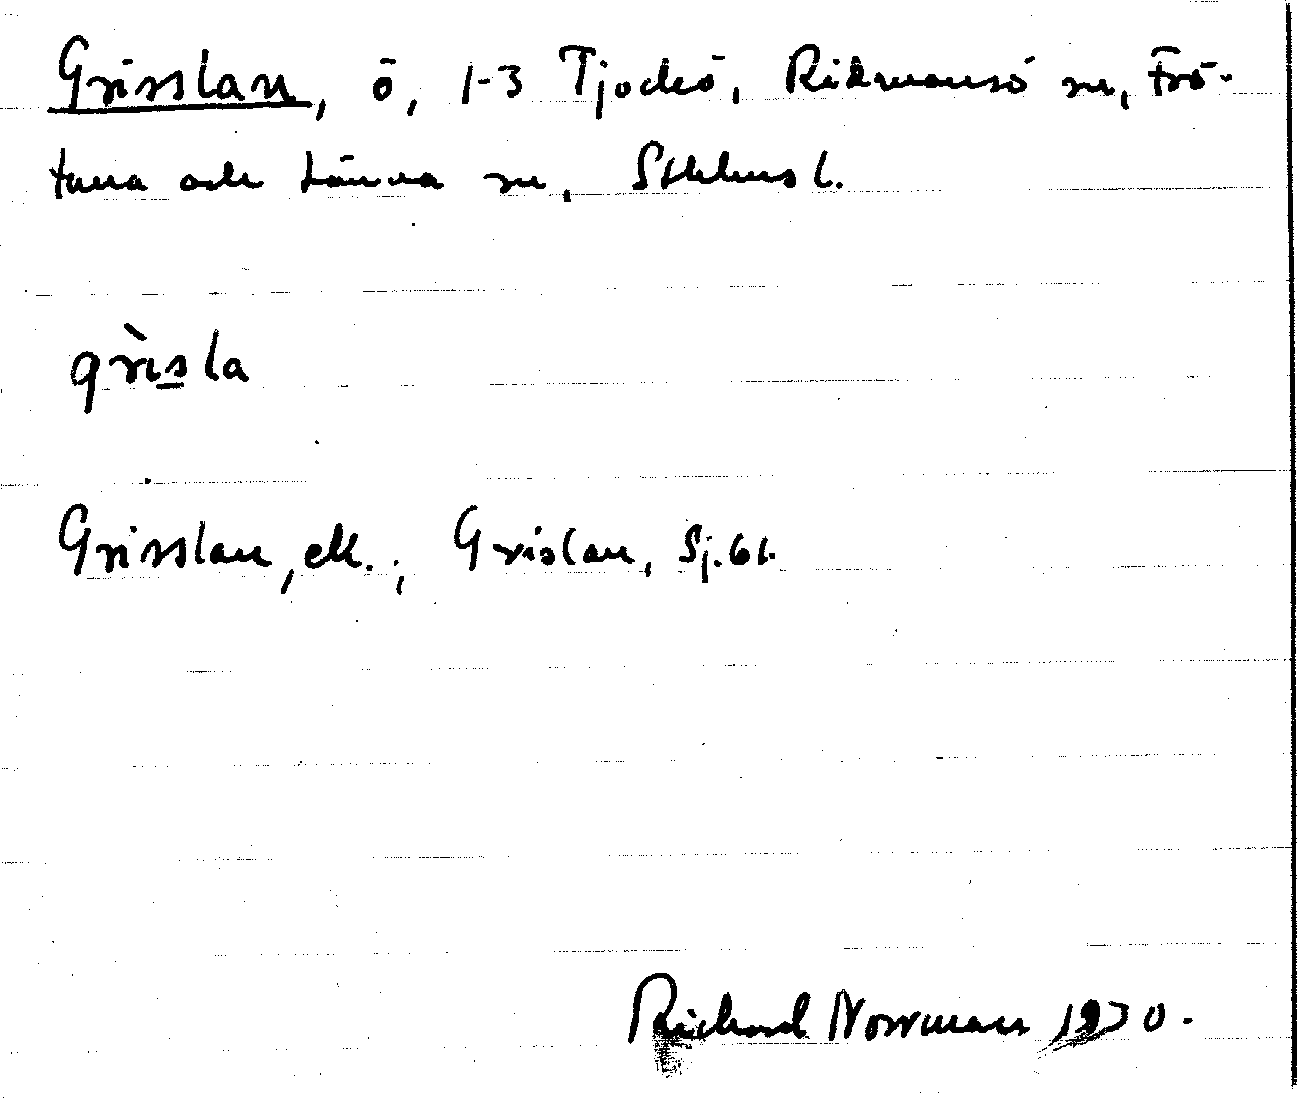 Grisslan, ö, 1-3 Tjockö, Rådmansö sn, Frö-
tuna och Länna sn, Sthlms l.
grìsla
Grisslan, ek.; Grislan, Sj.61.
Richard Norrman 1970.